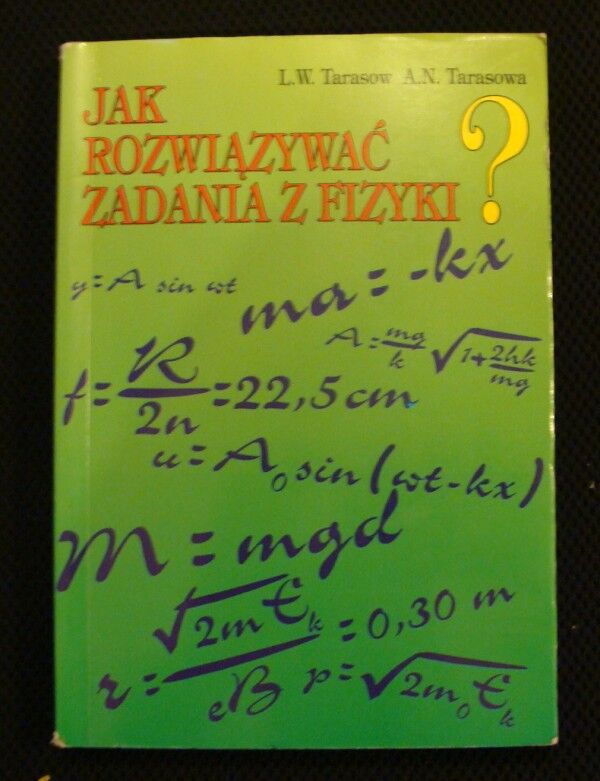 L.W. Tarasow A.N. Tarasowa
JAK
ROZWIĄZYWAĆ
ZADANIA Z FIZYKI ?
y = A sin ωt
ma = -kx
A = mg/k √(1+2hk/mg)
f = R/2n = 22,5 cm
u = A₀ sin (ωt - kx)
M = mgd
r = √(2mEₖ)/eB = 0,30 m
p = √(2m₀Eₖ)